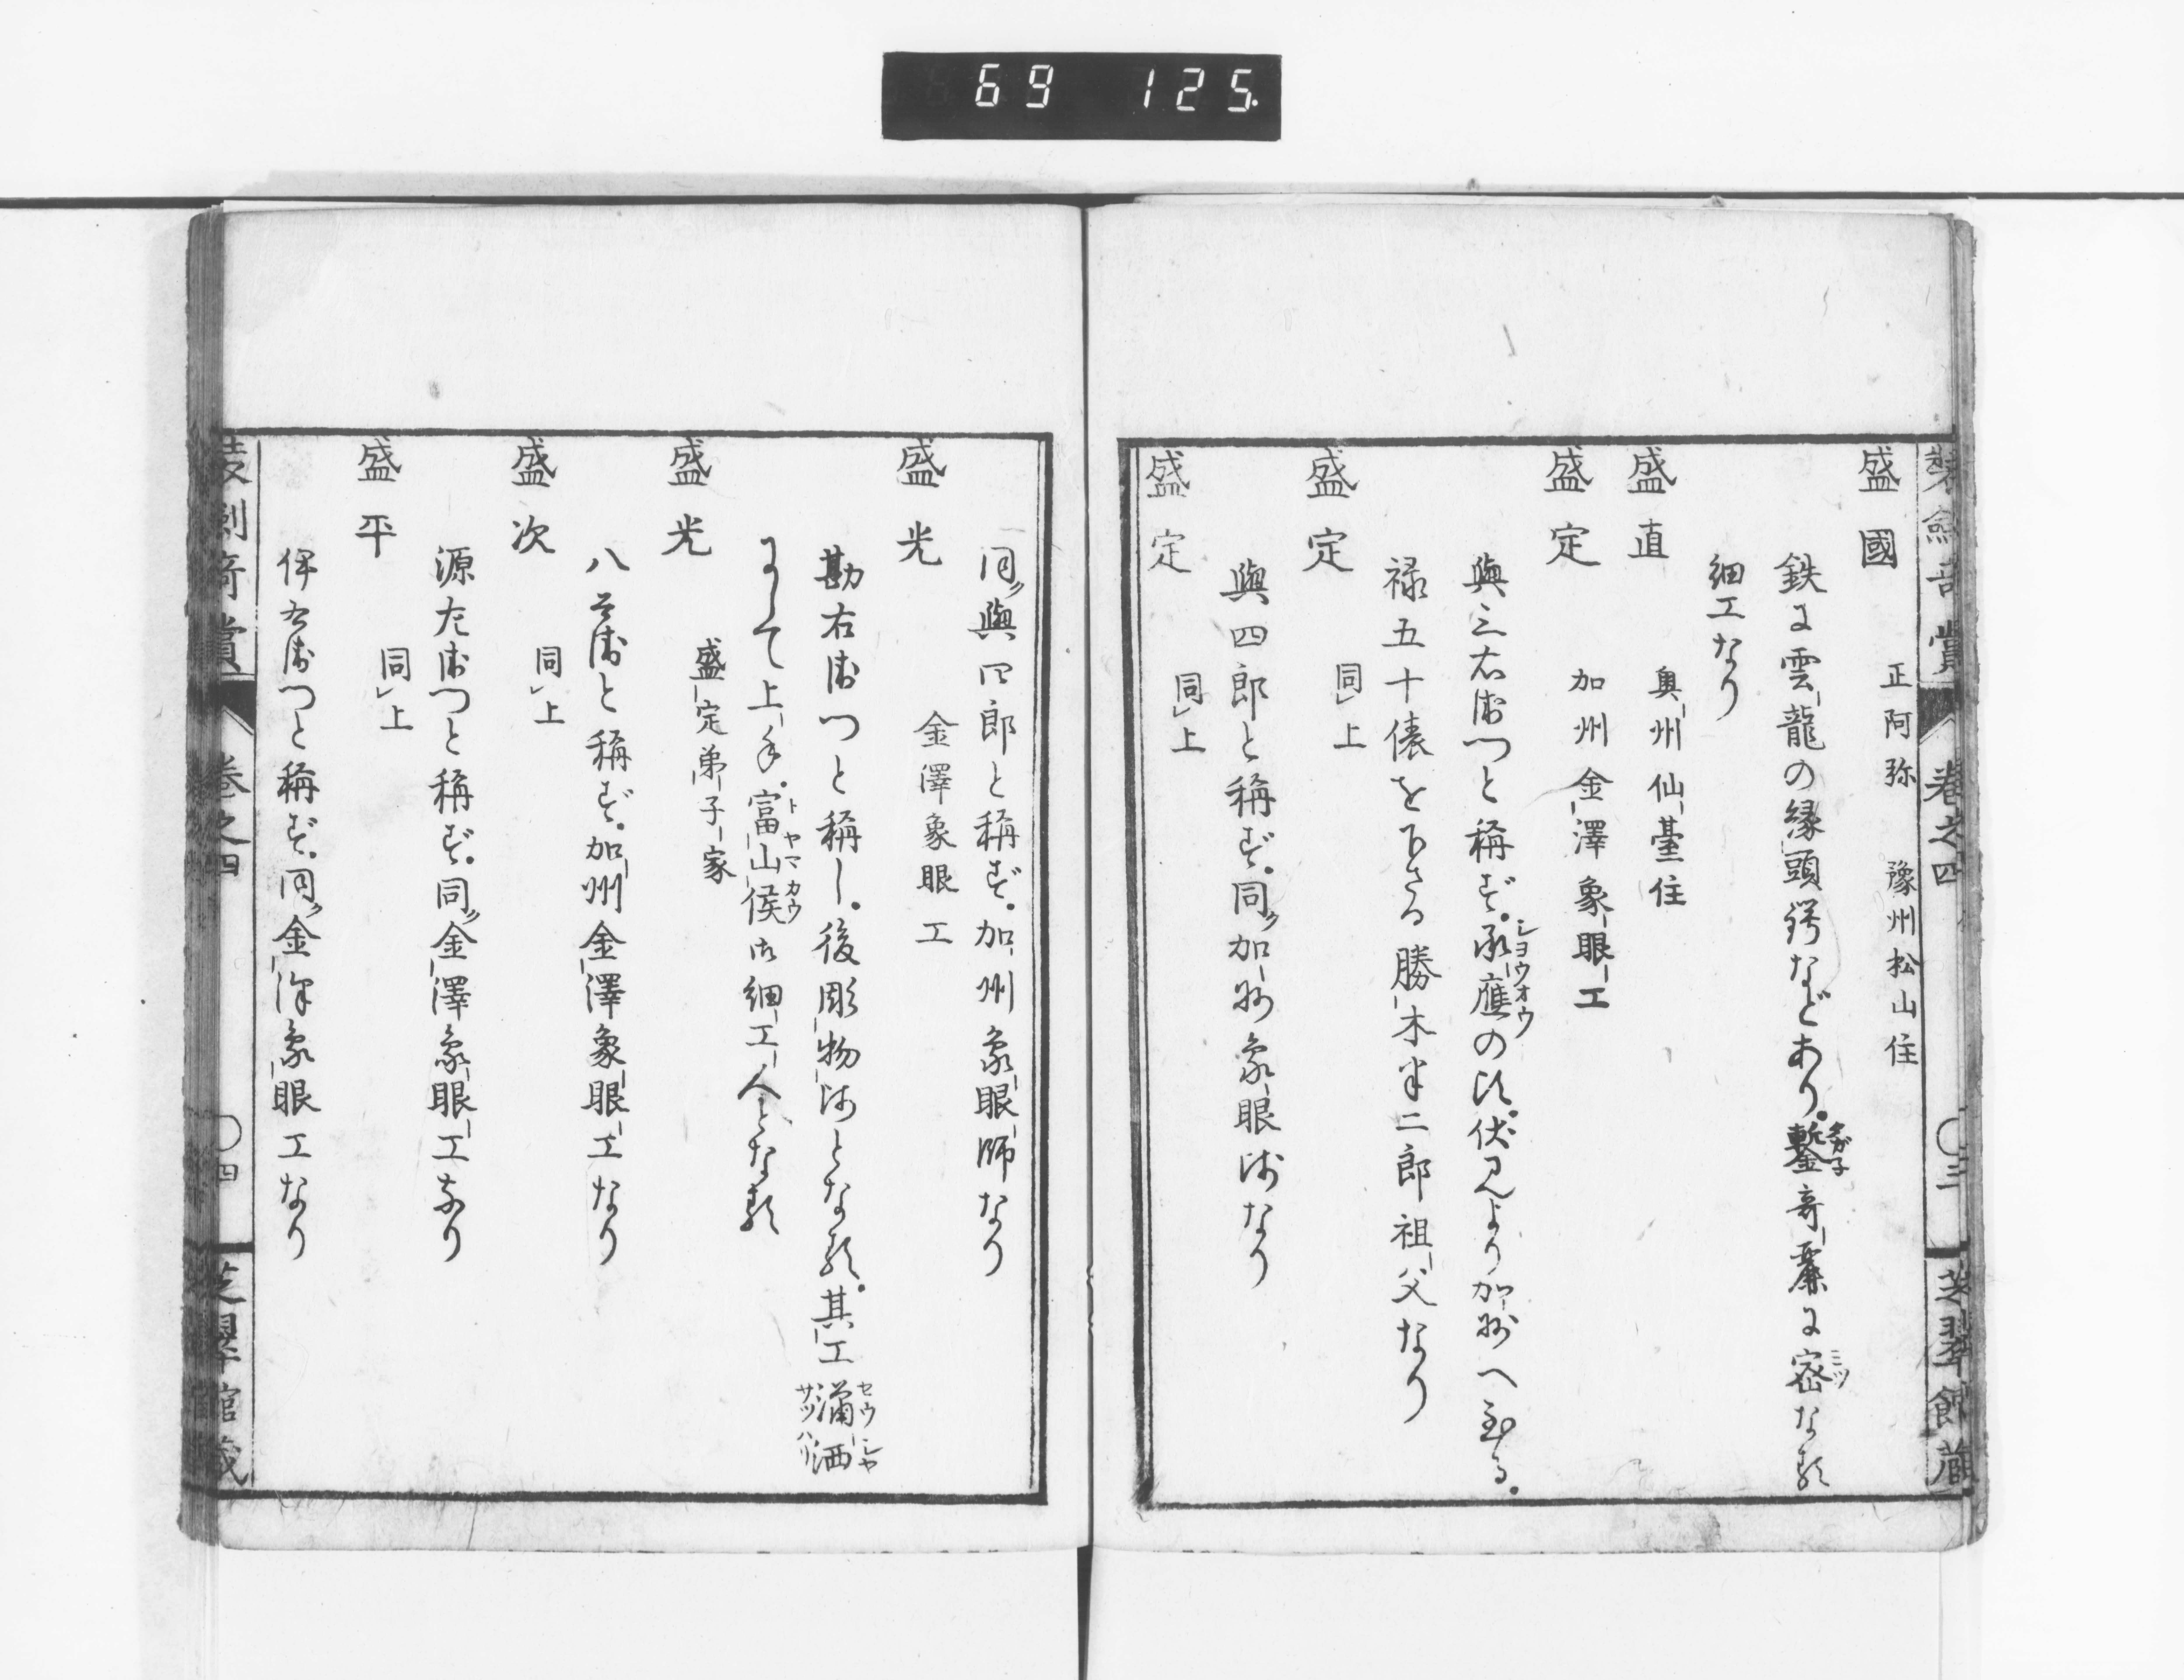 69 125
装劍奇賞 卷之四 〇三 芝翠館藏
盛國 正阿弥 豫州松山住
鉄に雲龍の縁頭鍔などあり。鏨奇麗に密なる
細工なり
盛直 奥州仙臺住
盛定 加州金澤象眼工
與三右衛門と称ず。承應の比。伏見より加州へ至る。
禄五十俵を下さる勝木半二郎祖父なり
盛定 同上
與四郎と稱ず。同ク加州象眼師なり
盛定 同上
同ク與四郎と稱ず。加州象眼師なり
盛光 金澤象眼工
勘右衛門と稱し。後彫物師となる。其工瀟洒
にして上手。富山侯御細工人となる
盛光 盛定弟子家
八兵衛と稱ず。加州金澤象眼工なり
盛次 同上
源左衛門と稱ず。同ク金澤象眼工なり
盛平 同上
伊右衛門と稱ず。同ク金澤象眼工なり
装劍奇賞 卷之四 〇四 芝翠館藏